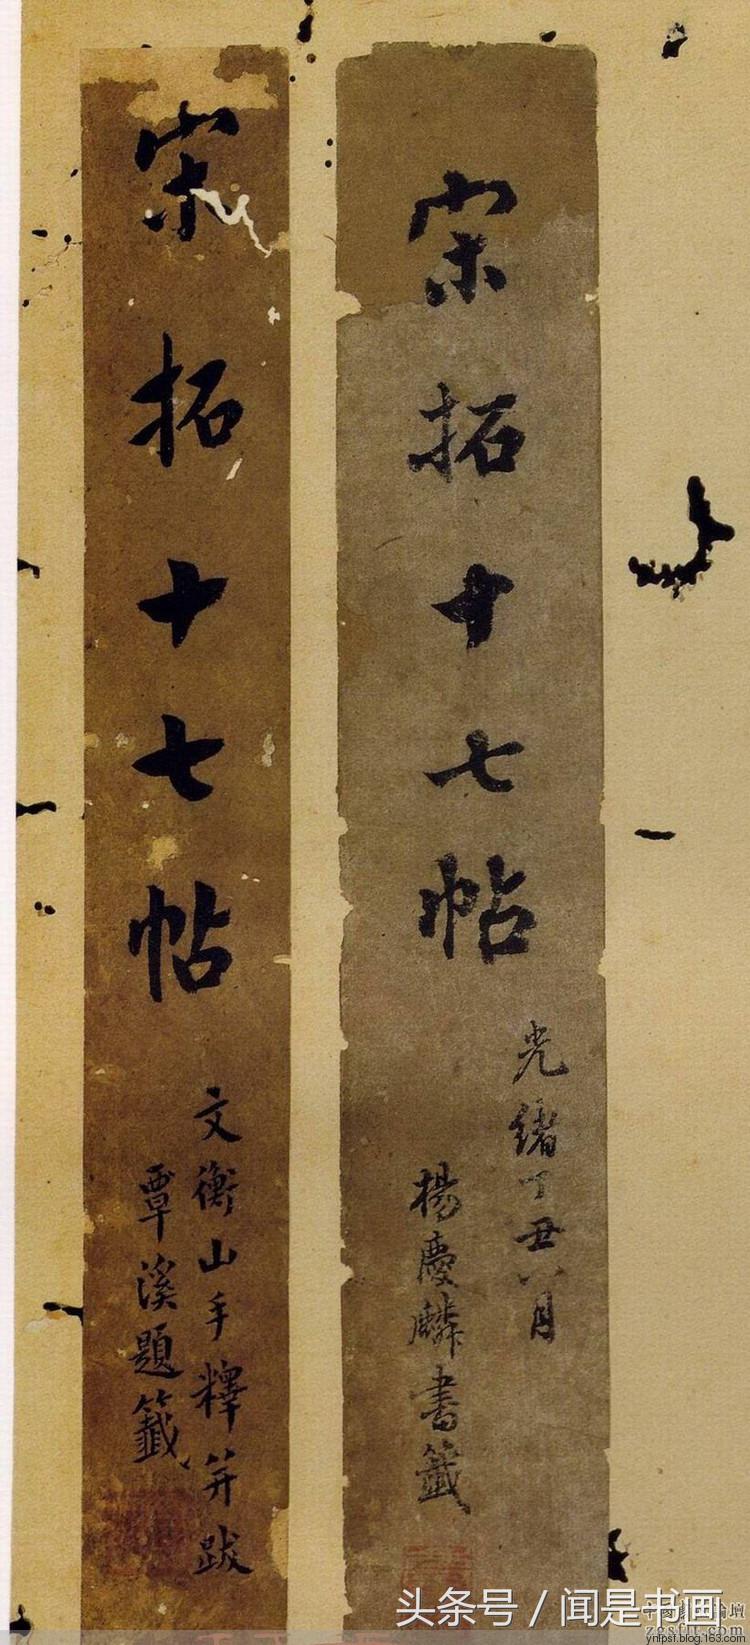 宋拓十七帖
光緒丁丑八月
楊慶麟書籤
宋拓十七帖
文衡山手釋并跋
覃溪題籤
头条号 / 闻是书画
ynlpsf.blog.163.com